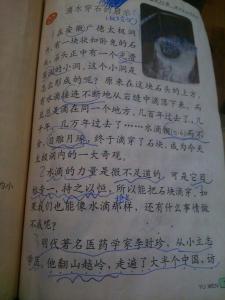 滴水穿石的启示
在安徽广德太极洞
内，有一块状如卧兔的石
头，石头正中有一个光滑
的小洞，这个小洞是
怎么形成的呢？原来在这块石头的上方，
有水滴接连不断地从岩缝中滴落下来，而
且总是滴在同一个地方，几百年过去了，几
千年、几万年过去了……水滴锲而不
舍，日雕月琢，终于滴穿了石块，成为今天
太极洞内的一大奇观。
水滴的力量是微不足道的，可是它目
标专一，持之以恒，所以能把石块滴穿。如
果我们也能像水滴那样，还有什么事情做
不成呢？
明代著名医药学家李时珍，从小立志
学医，他翻山越岭，走遍了大半个中国，访
YU WEN